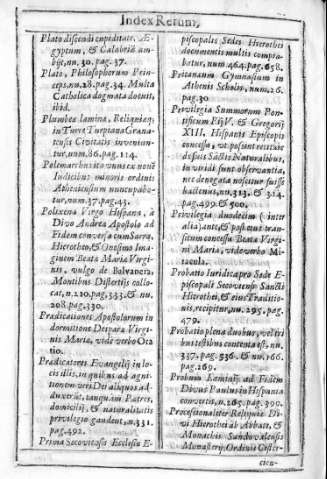 Index Rerum,
Plato discendi cupiditate, Æ-
gyptum, & Calabriã am-
bijt, nn. 30. pag. 37.
Plato, Philosophorum Prin-
ceps, nn. 28. pag. 34. Multa
Catholica dogmata docuit,
ibid.
Plumbea lamina, Reliquiæq;
in Turre Turpiana Grana-
tensis Civitatis invenion-
tur, num. 86. pag. 114.
Polemarchus unus ex novẽ
Iudicibus minoris ordinis
Atheniensium nuncupaba-
tur, num. 37. pag. 43.
Polixena Virgo Hispana, à
Divo Andrea Apostolo ad
Fidem conversa cum Sarra,
Hierotheo, & Onesimo Imagi-
nem Beatæ Mariæ Virgi-
nis, vulgo de Balvanera
Montibus Distertijs collo-
cat, n. 210. pag. 333. & nu.
208. pag. 330.
Prædicationes Apostolorum in
dormitione Deiparæ Virgi-
nis Mariæ, vide verbo Ora
tio.
Prædicatores Evangelij in lo-
cis illis, in quibus ad agni-
tionem veri Dei aliquos ad-
duxerũt, tanquam Patres,
domicilij, & naturalitatis
privilegio gaudent, n. 331.
pag. 492.
Prima Secoviensis Ecclesia E-
piscopalis Sedes Hierothei
documentis multis compro-
batur, num. 464. pag. 658.
Pritanæum Gymnasium in
Athenis Scholis, num. 26.
pag. 30
Privilegia Summorum Pon-
tificum Pij V. & Gregorij
XIII. Hispanis Episcopis
concessa, ut possint recitare
de suis Sãctis Naturalibus,
in viridi sunt observantia,
nec derogata noscitur fuisse
hactenus, nn. 313. & 314.
pag. 499. & 500.
Privilegia duodecim (inter
alia) ante, & post eius tran-
situm concessa Beatæ Virgi-
ni Mariæ, vide verbo Mi-
racula.
Probatio Iuridica pro Sede E-
piscopali Secoviensi Sancti
Hierothei, & eius Traditio-
nis, recipitur, nu. 295. pag.
479.
Probatio plena duobus, vel tri
bus testibus contenta est, nu.
337. pag. 536. & nu. 166.
pag. 269.
Probum
Divus Paulus in Hispania
convertit, n. 265. pag. 390.
Processionaliter Reliquiæ Di-
vi Hierothei ab Abbate, &
Monachis Sandovalensis
Monasterij, Ordinis Cister-
cien-